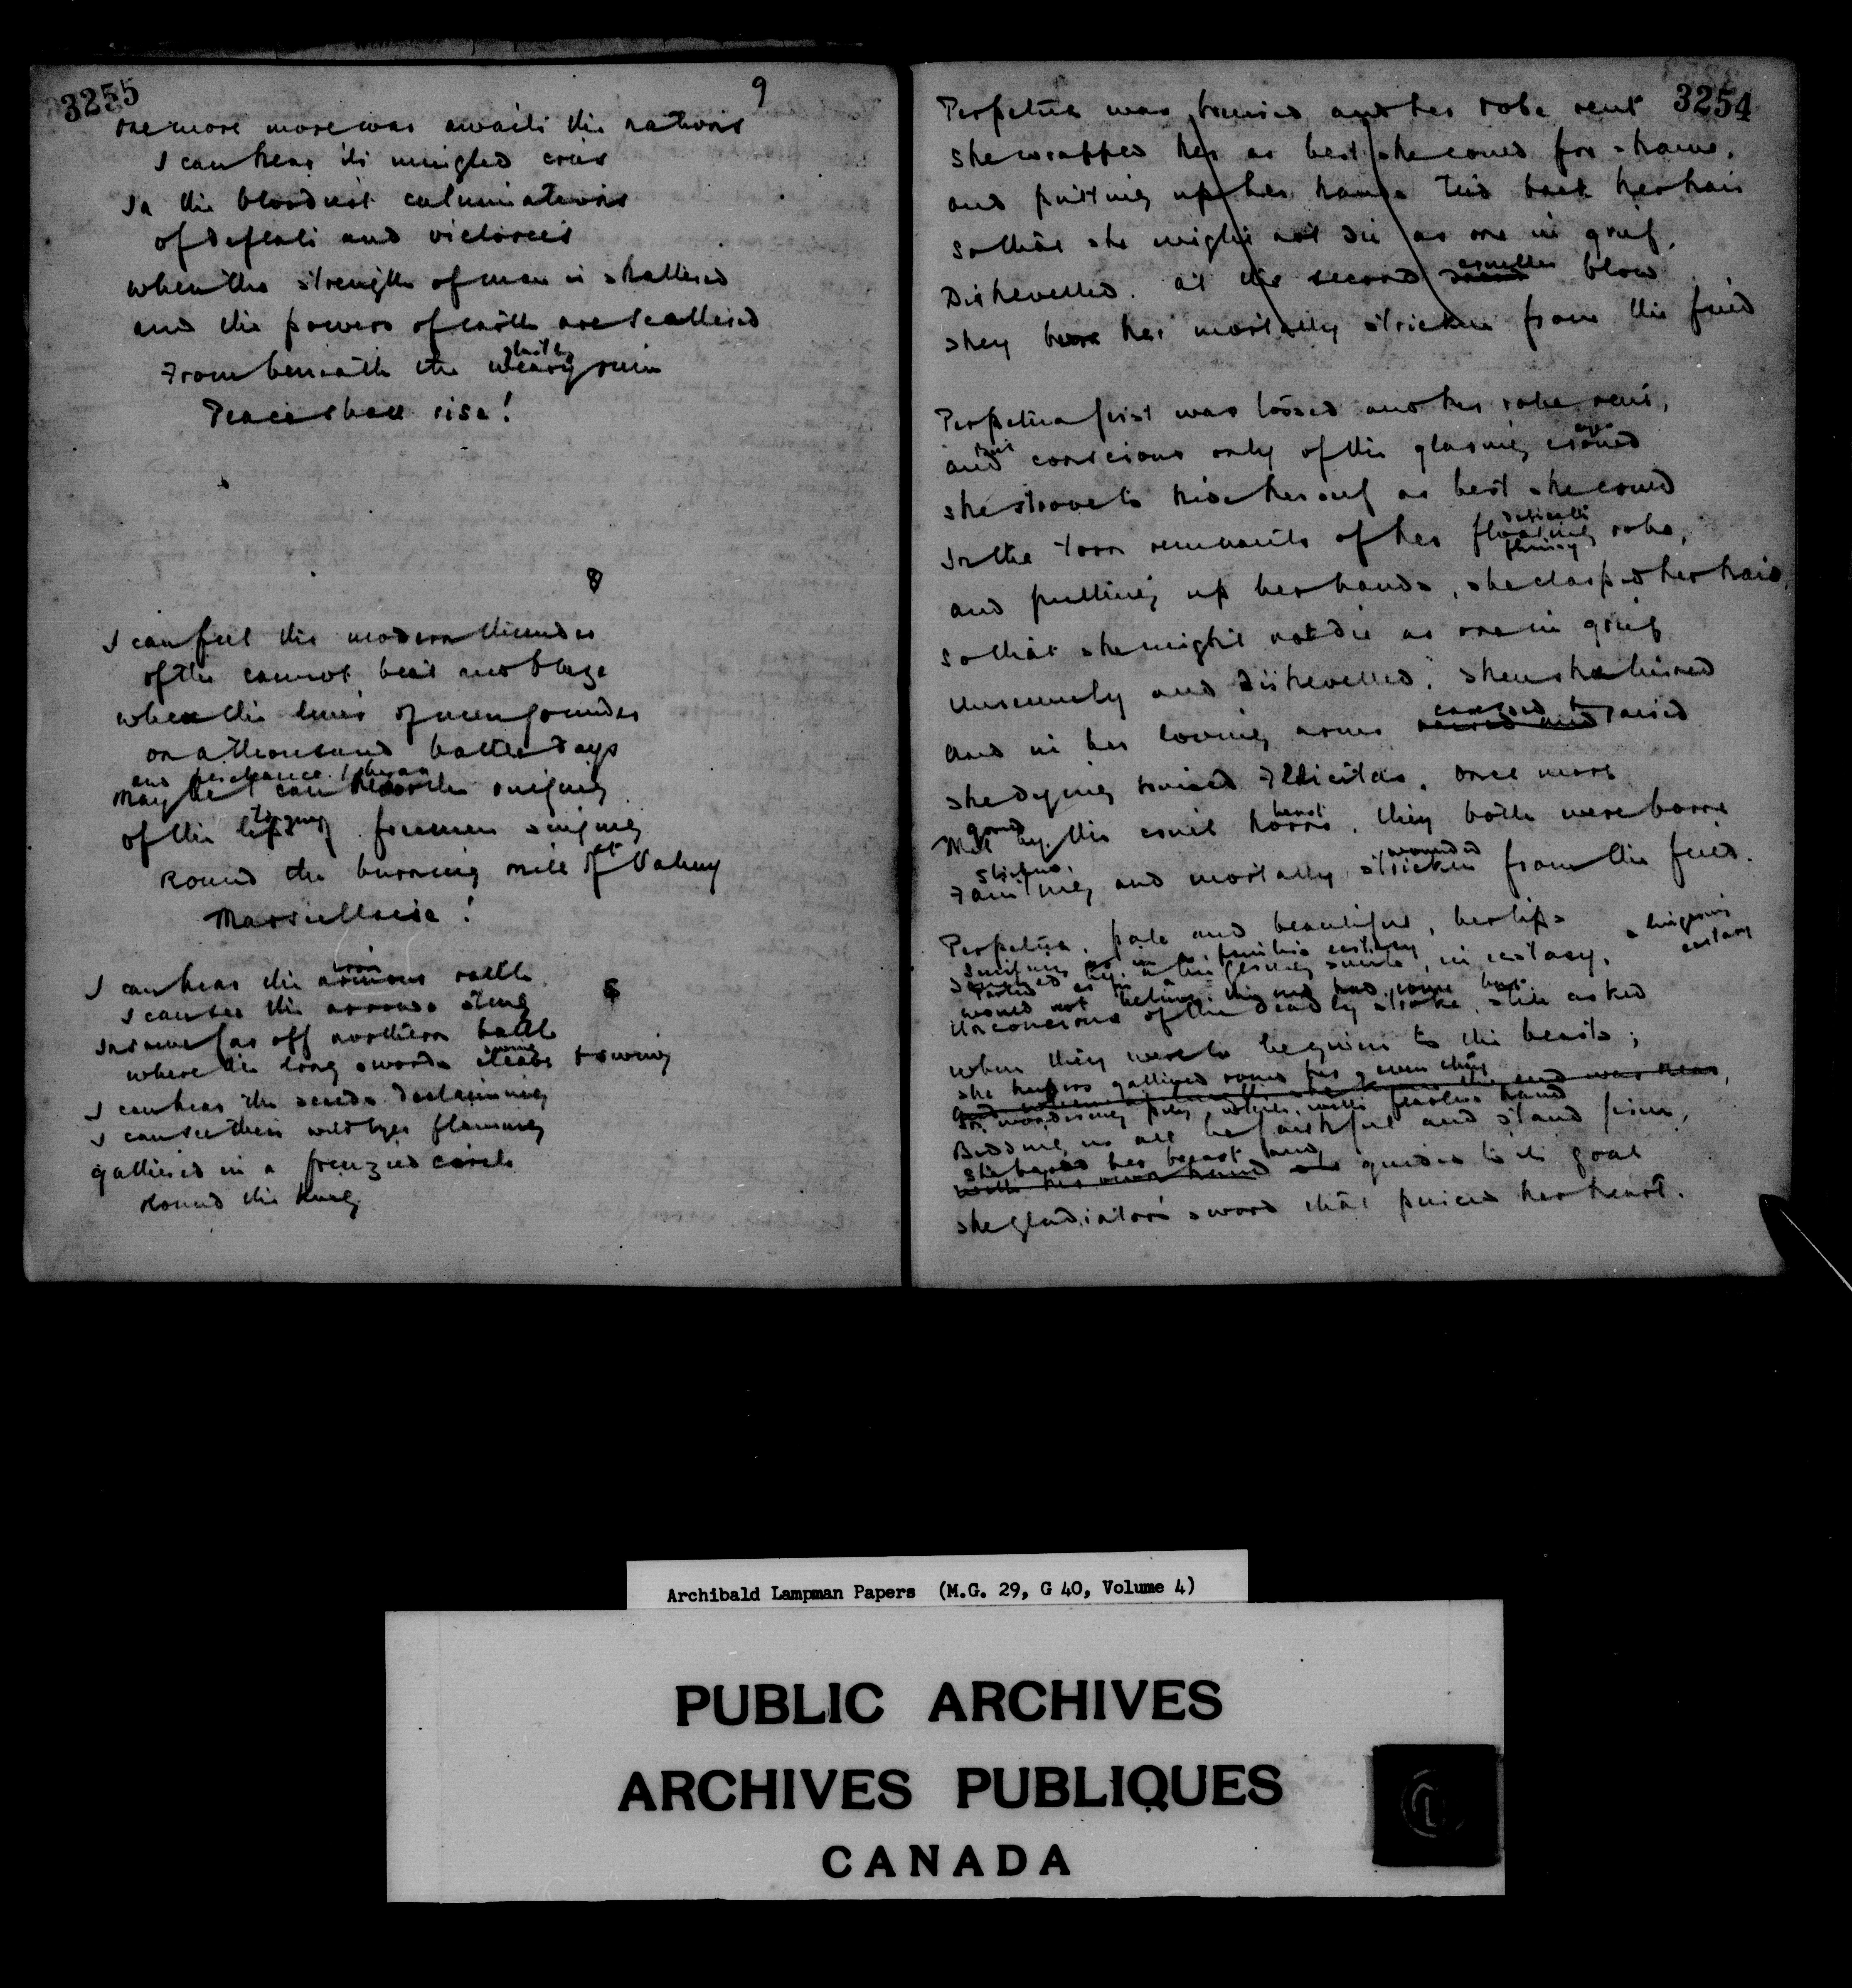 3255
9
one more more war awaits the nations
I can hear its mingled cries
In the bloodiest culminations
of defeats and victories
when the strength of man is shattered
and the powers of earth are scattered
From beneath the weary ruin
Peace shall rise!
8
I can feel the modern thunder
of the cannot beat and blaze
when the lines of men go under
on a thousand battle days
and perchance I hear
Maybe I can hear the singing
of the lips of foremen singing
Round the burning mill at Valmy
Marseillaise!
iron
I can hear the armour rattle
I can see the arrows sting
6
In some far off northern battle
where the long swords swing
I can hear the scalds declaiming
I can see their wild eyes flaming
gathered in a frenzied circle
Round the King
3254
Perpetua was bruised and her robe rent
she wrapped her as best she could for shame,
and putting up her hands tied back her hair
so that she might not die as one in grief,
Dishevelled. at the second another blow
They bore her mortally stricken from the field
Perpetua first was tossed and her robe rent,
and but conscious only of the glaring crowd
she strove to hide herself as best she could
In the torn remnants of her floating robe,
flimsy
and putting up her hands, she clasped her hair
so that she might not die as one in grief
unseemly and dishevelled. Then she turned
and in her loving arms caressed & raised
The dying bruised Felicitas. Once more
gored by the cruel beast, they both were borne
Fainting and mortally stricken from the field.
wounded
Perpetua, pale and beautiful, her lips
a lingering
ecstasy
smile, in ecstasy,
would not believe the end had come but
Unconscious of the deadly stroke, still asked
when they were to be given to the beasts;
with fearless hand
Bidding us all be faithful and stand firm,
She bared her breast and guided to its goal
The gladiator's sword that pierced her heart.
Archibald Lampman Papers (M.G. 29, G 40, Volume 4)
PUBLIC ARCHIVES
ARCHIVES PUBLIQUES
CANADA